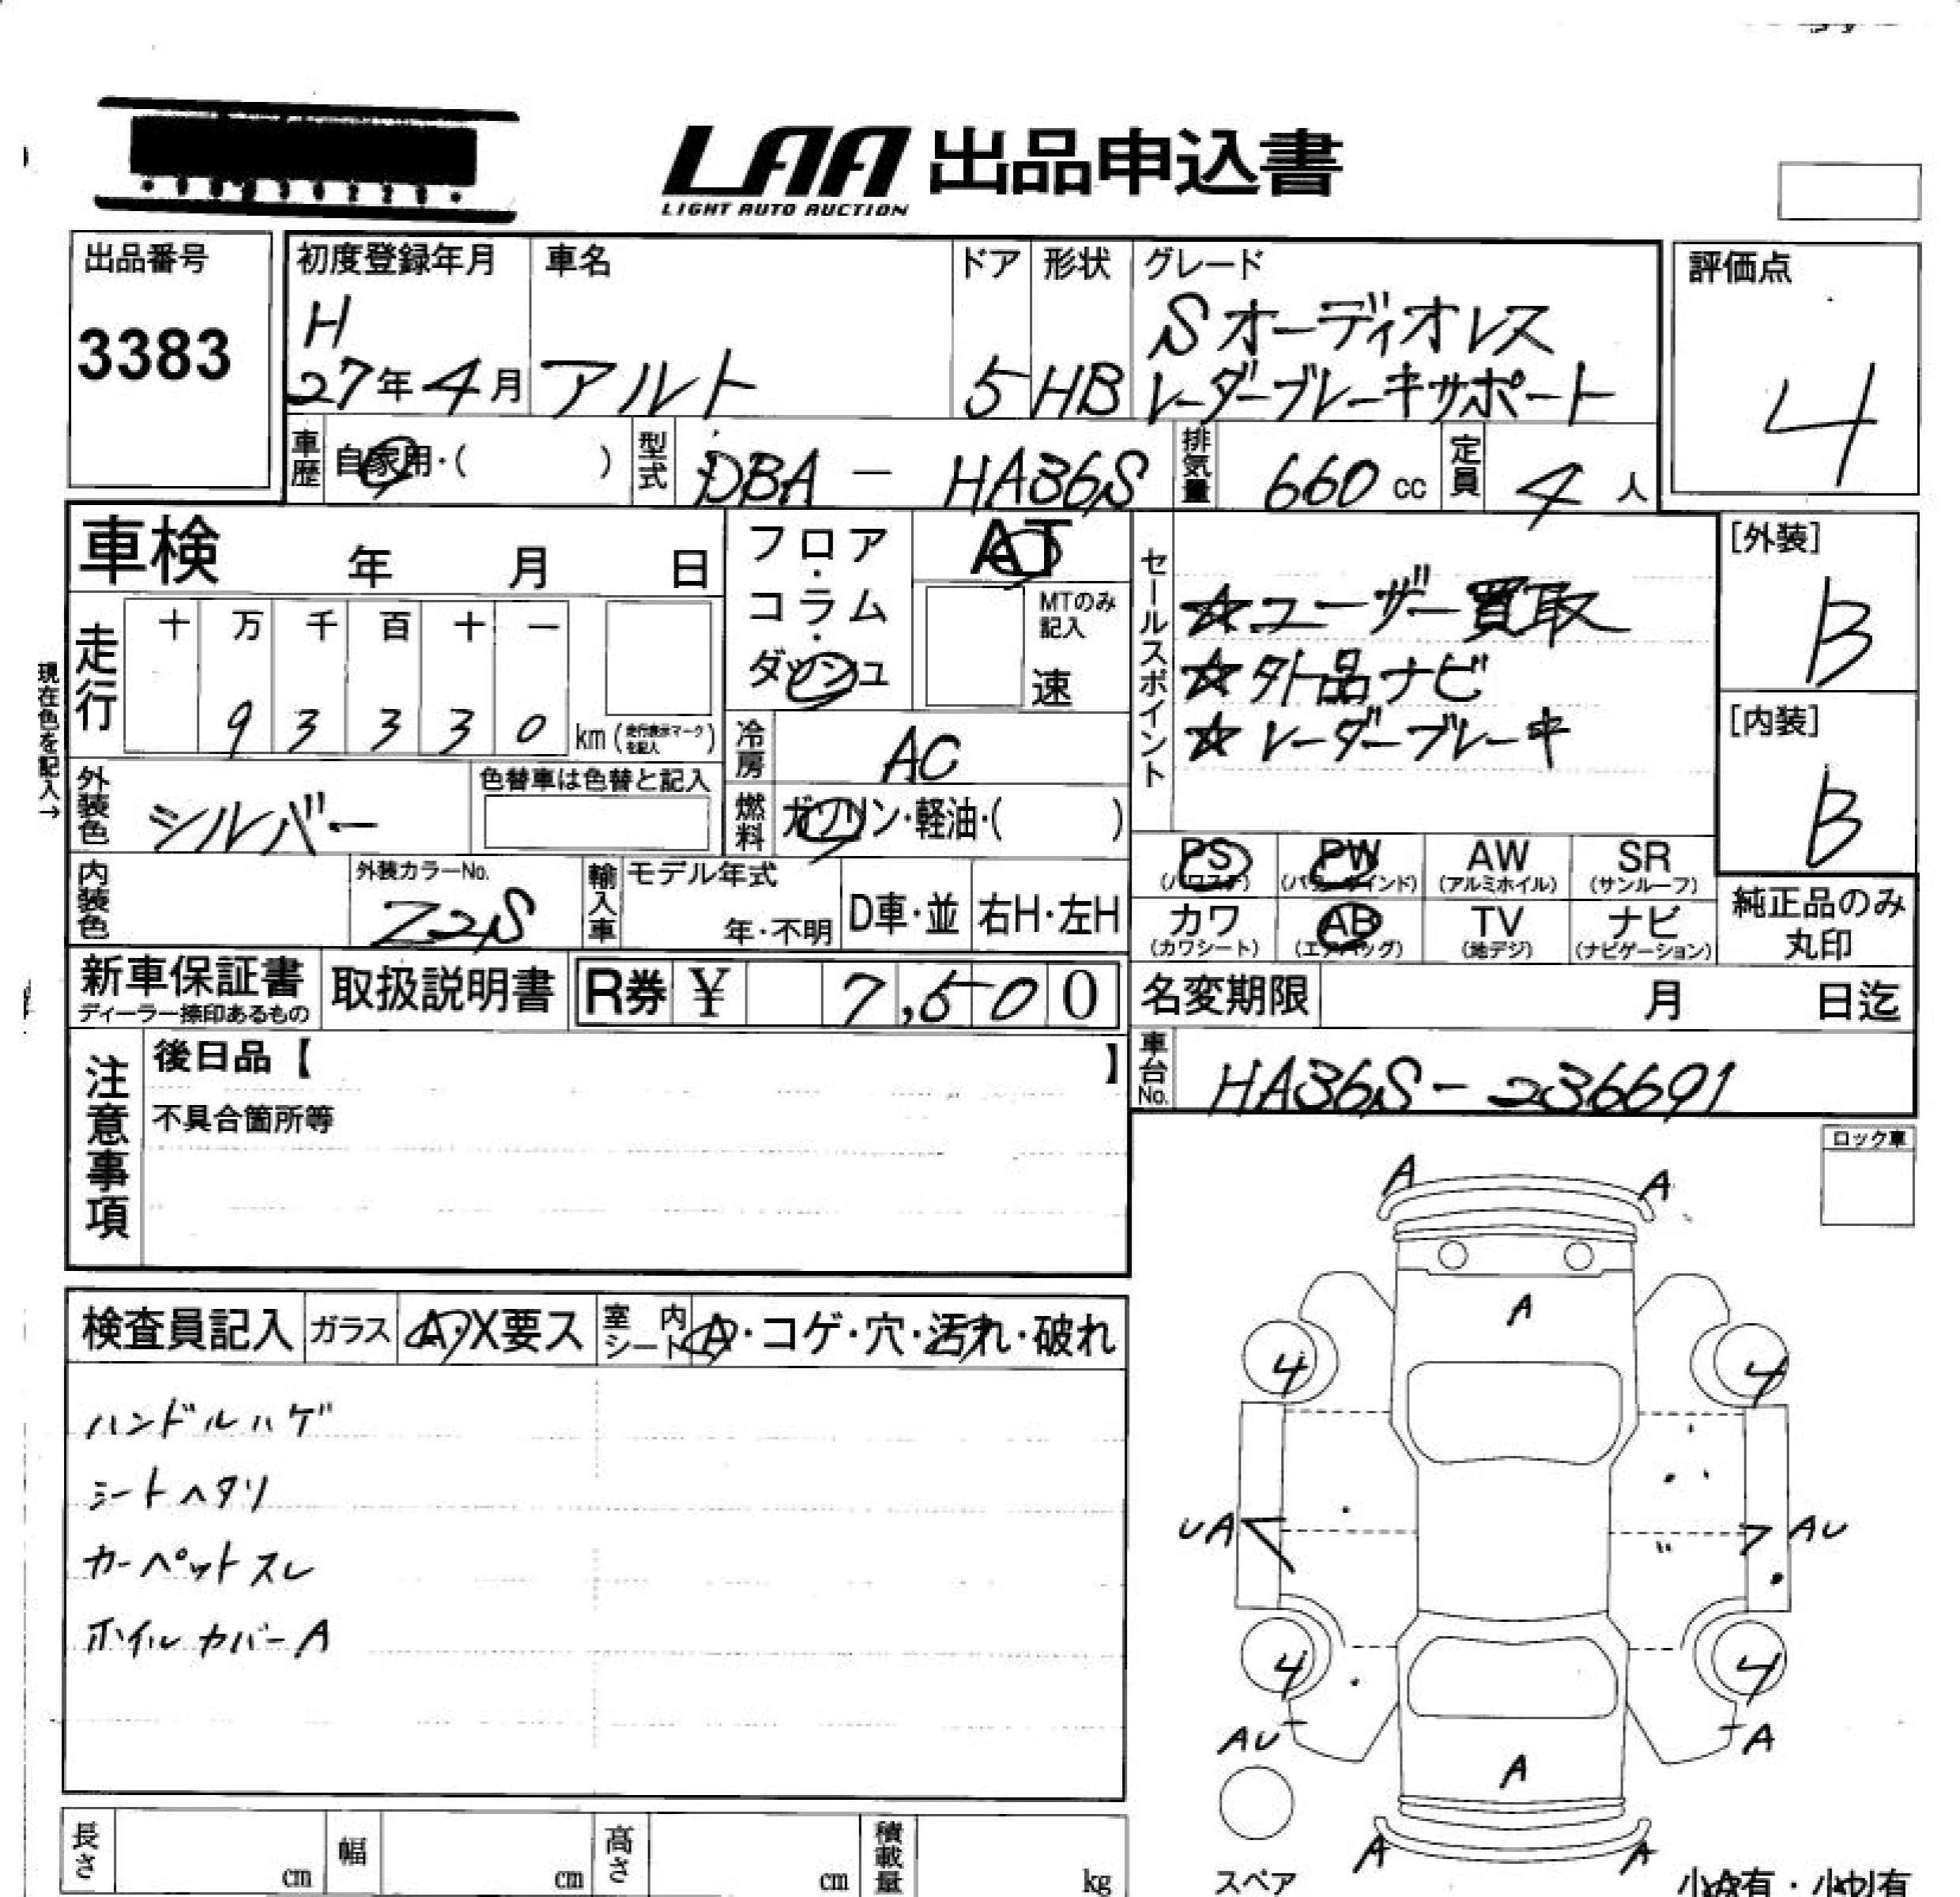 LAA 出品申込書
LIGHT AUTO AUCTION
出品番号
3383
初度登録年月
H
27年4月
車名
アルト
ドア
5
形状
HB
グレード
Sオーディオレス
レーダーブレーキサポート
評価点
4
車歴
自家用・( )
型式
DBA - HA36S
排気量
660 cc
定員
4 人
車検 年 月 日
フロア・コラム・ダッシュ
AT
MTのみ記入
速
セールスポイント
☆ユーザー買取
☆外品ナビ
☆レーダーブレーキ
[外装]
B
[内装]
B
現在色を記入→
走行
十 万 千 百 十 一
9 3 3 3 0 km (走行表示マークを記入)
冷房
AC
外装色
シルバー
色替車は色替と記入
燃料
ガソリン・軽油・( )
内装色
外装カラーNo.
Z2S
輸入車
モデル年式
年・不明
D車・並
右H・左H
PS (パワステ)
PW (パワーウインド)
AW (アルミホイル)
SR (サンルーフ)
カワ (カワシート)
AB (エアバッグ)
TV (地デジ)
ナビ (ナビゲーション)
純正品のみ丸印
新車保証書
ディーラー捺印あるもの
取扱説明書
R券 ¥ 7,500
名変期限 月 日迄
注意事項
後日品【 】
不具合箇所等
車台No.
HA36S-236691
ロック車
検査員記入
ガラス
A・X要ス
室内シート
A・コゲ・穴・汚れ・破れ
ハンドルハゲ
シートヘタリ
カーペットスレ
ホイルカバーA
A A
A
4 4
UA AU
4 4
AU A
A
A A
スペア
小A有・小U有
長さ cm
幅 cm
高さ cm
積載量 kg